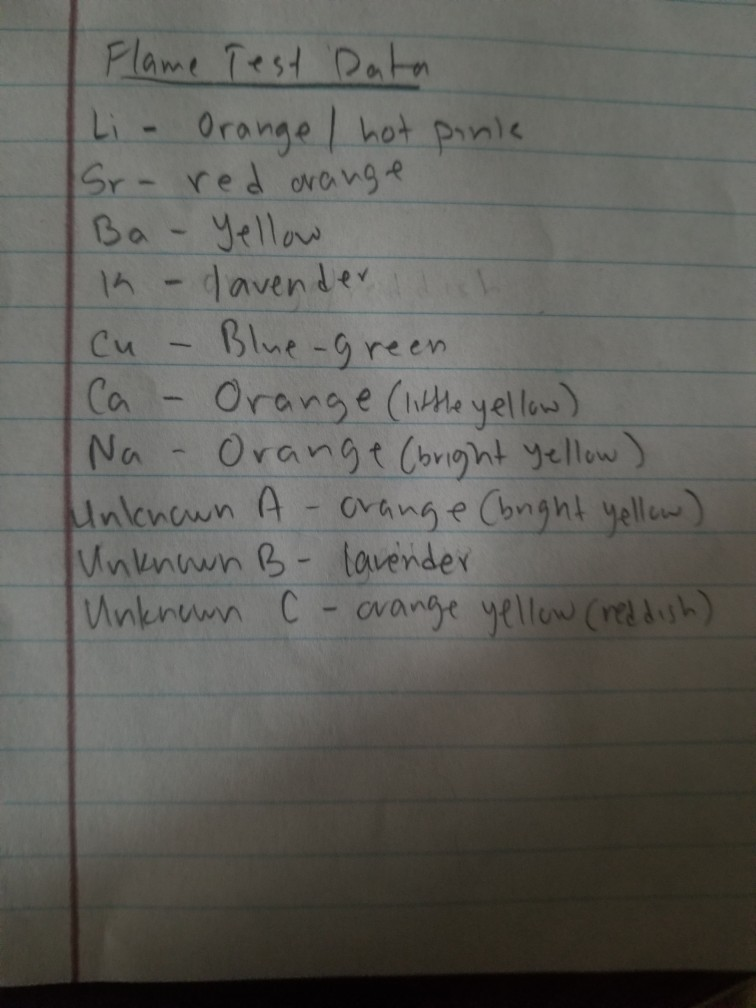 Flame Test Data
Li - Orange / hot pink
Sr - red orange
Ba - Yellow
K - lavender
Cu - Blue-green
Ca - Orange (little yellow)
Na - Orange (bright yellow)
Unknown A - orange (bright yellow)
Unknown B - lavender
Unknown C - orange yellow (reddish)